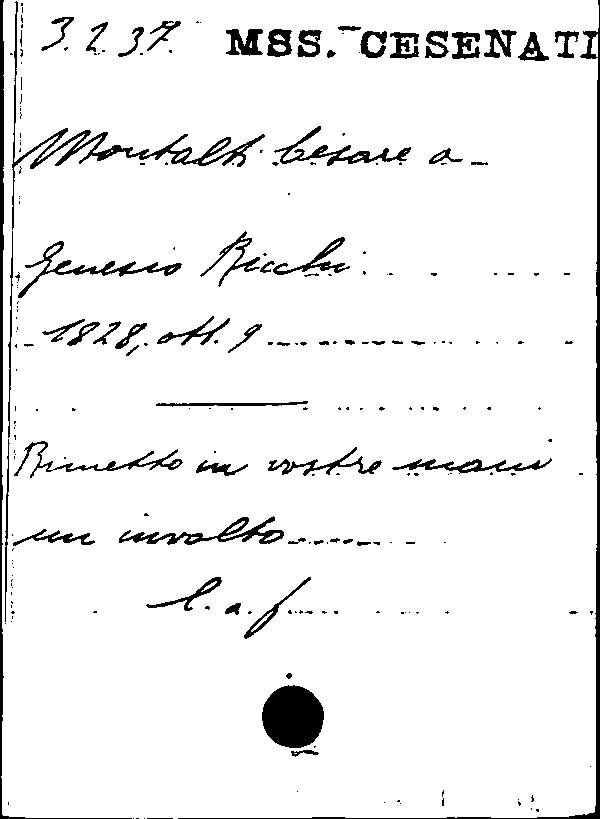 3.2.37. MSS. CESENATI
Montalti Cesare a
Genesio Ricchi
1828, ott. 9
Rimetto in vostre mani
un involto
l. a. f.